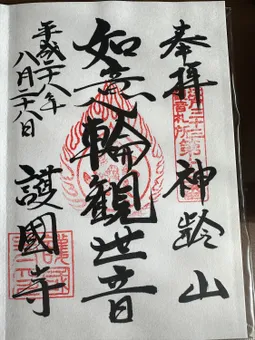 奉拝
神齢山
如意輪観世音
平成二十八年
八月二十八日
護國寺